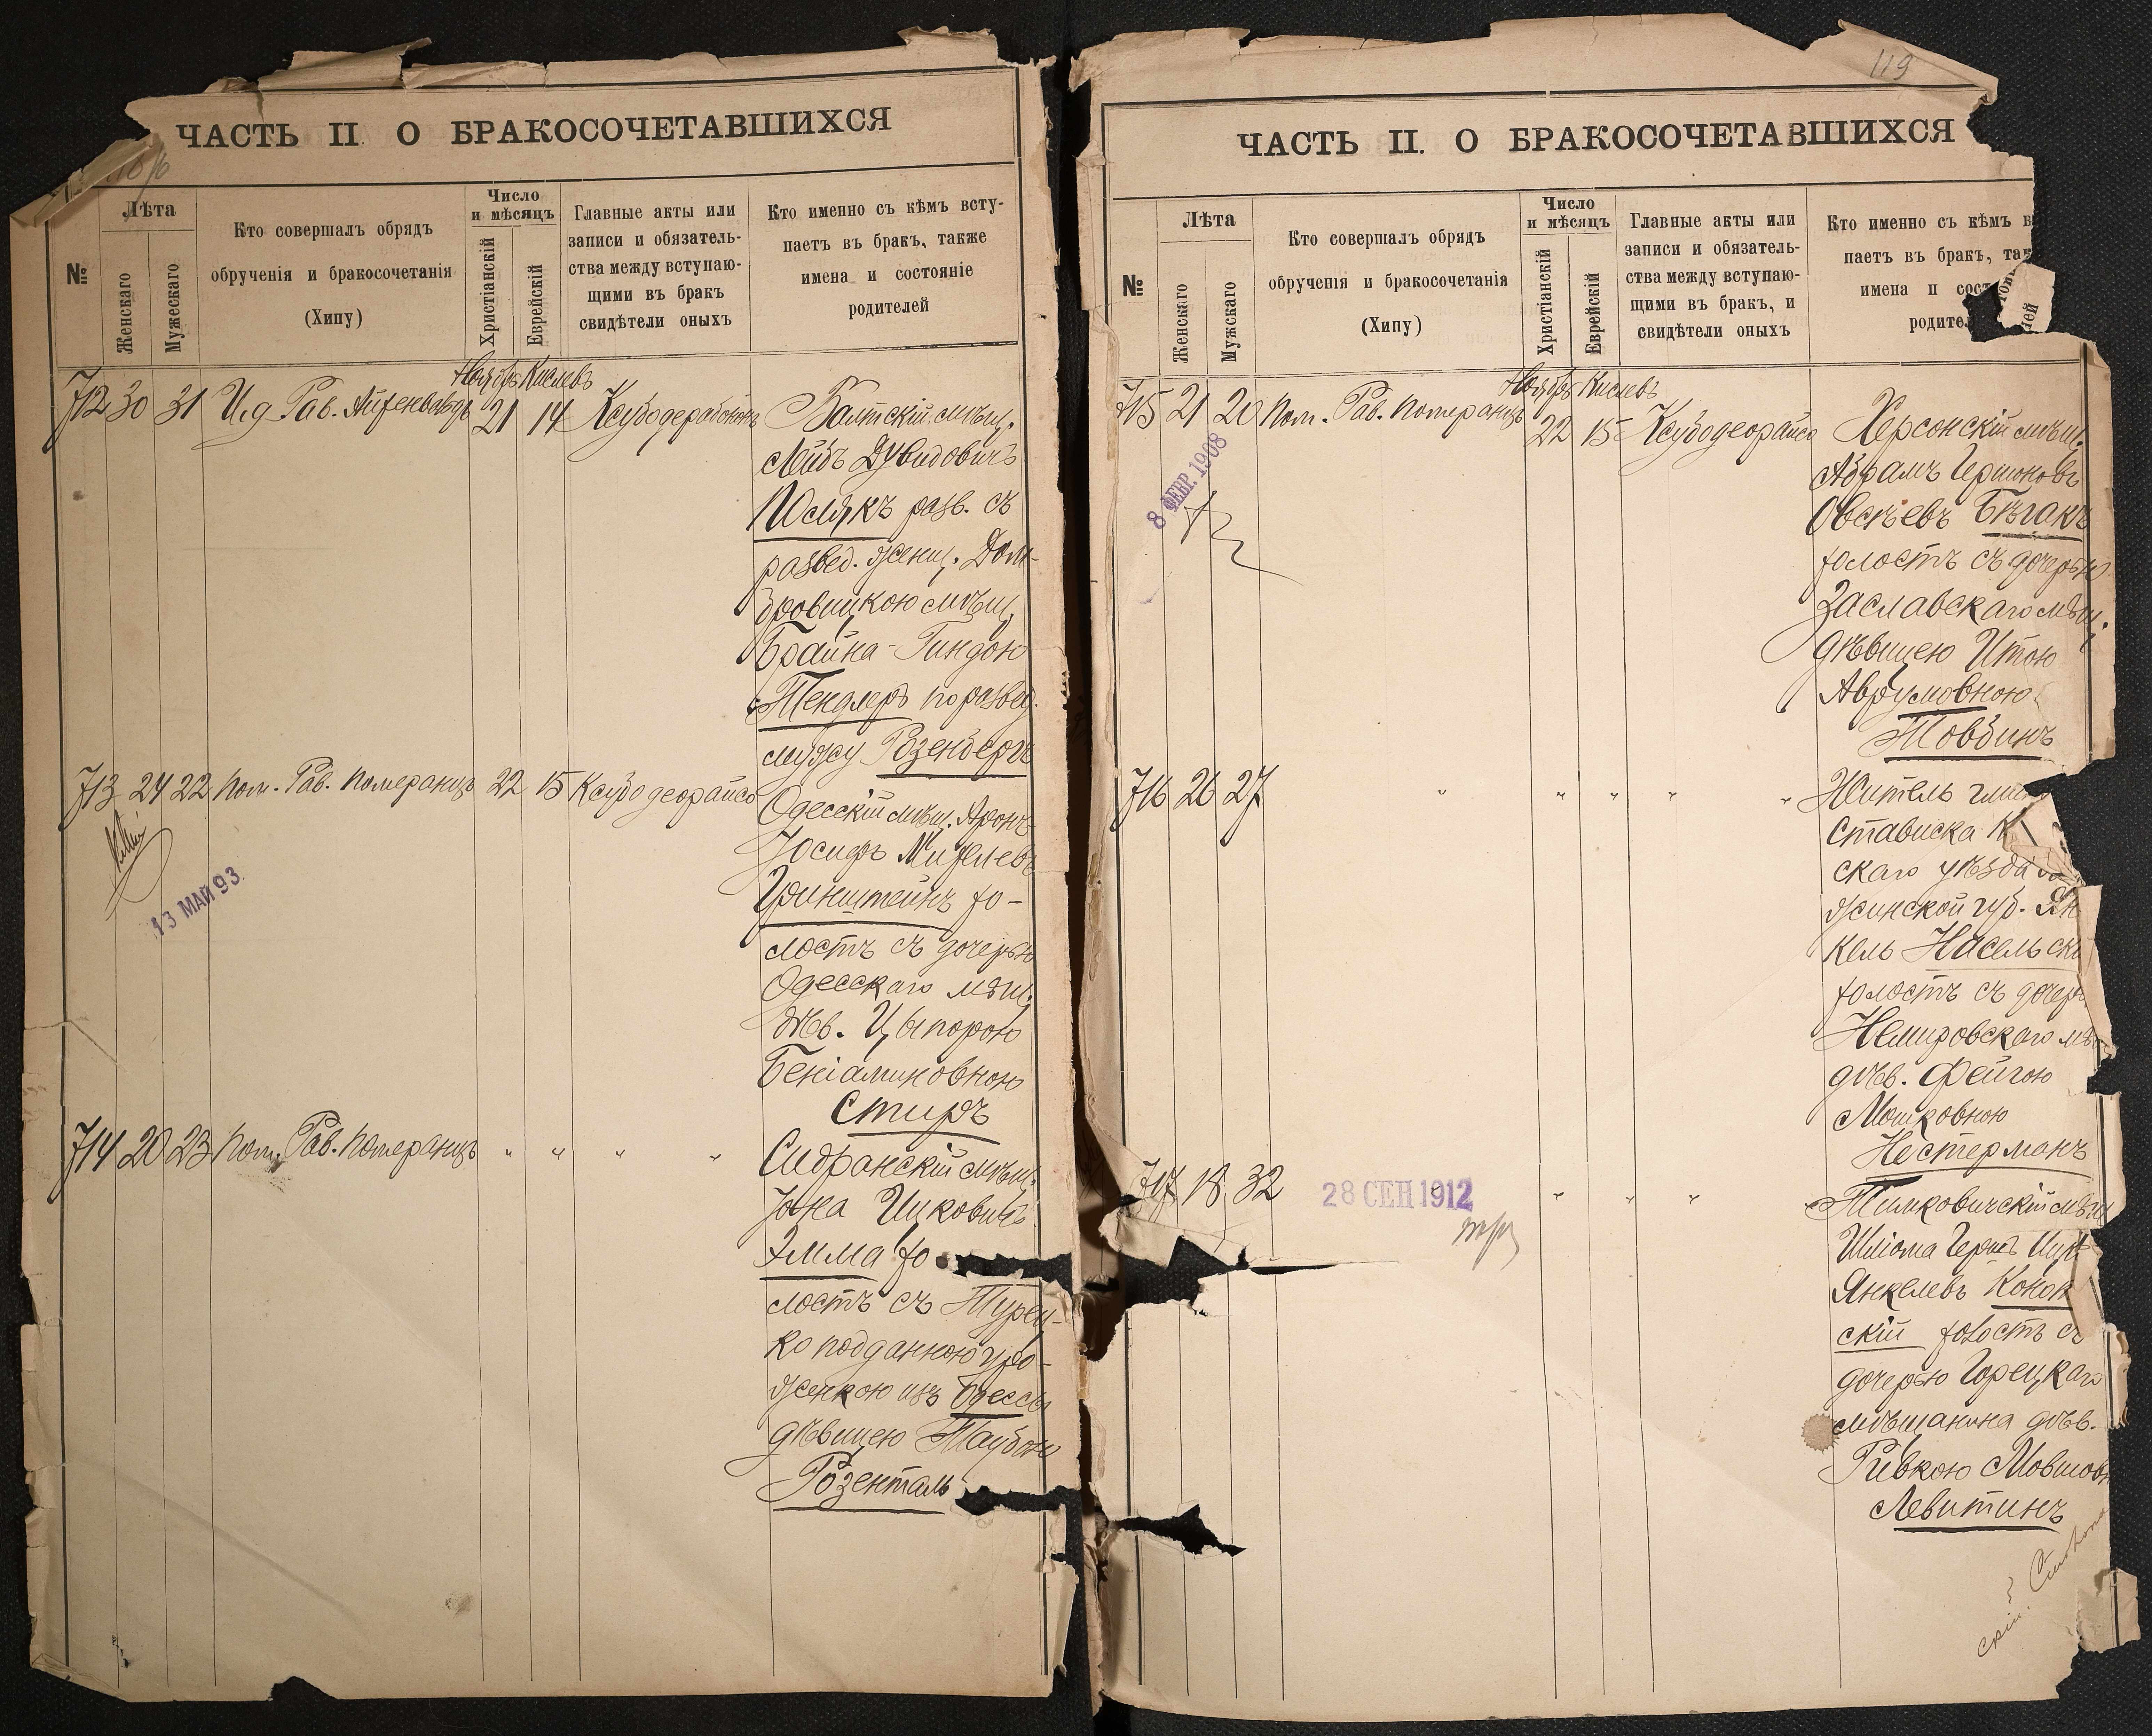 ЧАСТЬ II О БРАКОСОЧЕТАВШИХСЯ
№
Лѣта
Женскаго
Мужескаго
Кто совершалъ обрядъ
обрученія и бракосочетанія
(Хипу)
Число
и мѣсяцъ
Христіанскій
Еврейскій
Главные акты или
записи и обязатель-
ства между вступаю-
щими въ бракъ
свидѣтели оныхъ
Кто именно съ кѣмъ всту-
паетъ въ бракъ, также
имена и состояніе
родителей
Ноябрь Кислевъ
712 30 31 И.д. Рав. 21 14
Балтскій мѣщ.
Лейбъ Дувидовичъ
Полякъ разв. съ
развед. женщ. Дом-
бровицкою мѣщ.
Брайна-Гиндою
Тендлеръ по развед.
мужу Розенбергъ
713 24 22 Пом. Рав. Померанцъ 22 15 Ксубодеорайсо
13 МАЙ 93
Одесскій мѣщ. Аронъ
Іосифъ
Гринштейнъ хо-
лостъ съ дочерью
Одесскаго мѣщ.
дѣв. Ципорою
Беніаминовною
Стиръ
714 20 23 Пом. Рав. Померанцъ " " " "
мѣщ.
Іона Ицковичъ
Эмма хо-
лостъ съ Турец-
ко подданною уро-
женкою изъ Одессы
дѣвицею Таубою
Розенталь
119
ЧАСТЬ II. О БРАКОСОЧЕТАВШИХСЯ
№
Лѣта
Женскаго
Мужскаго
Кто совершалъ обрядъ
обрученія и бракосочетанія
(Хипу)
Число
и мѣсяцъ
Христіанскій
Еврейскій
Главные акты или
записи и обязатель-
ства между вступаю-
щими въ бракъ, и
свидѣтели оныхъ
Кто именно съ кѣмъ в
паетъ въ бракъ, так
имена и сост
родител
Ноябрь Кислевъ
715 21 20 Пом. Рав. Померанцъ 22 15 Ксубодеорайсо
8 ФЕВР. 1908
Херсонскій мѣщ.
Абрамъ Гершковъ
Овсѣевъ Бѣгакъ
холостъ съ дочерью
Заславскаго мѣщ.
дѣвицею Итою
Аврумовною
Товбинъ
716 26 27 " " " " "
Житель
Стависка К
скаго уѣзда
жинской губ. Ян
кель Насельски
холостъ съ дочерь
Немировскаго мѣ
дѣв. Фейгою
Мошковною
Нестерманъ
717 18 32 " " " "
28 СЕН 1912
Тимковичскій мѣщ
Шлiома Гершъ
Янкелевъ Коноп
скій холостъ съ
дочерью Горецкаго
мѣщанина дѣв.
Ривкою Мовшов
Левитинъ